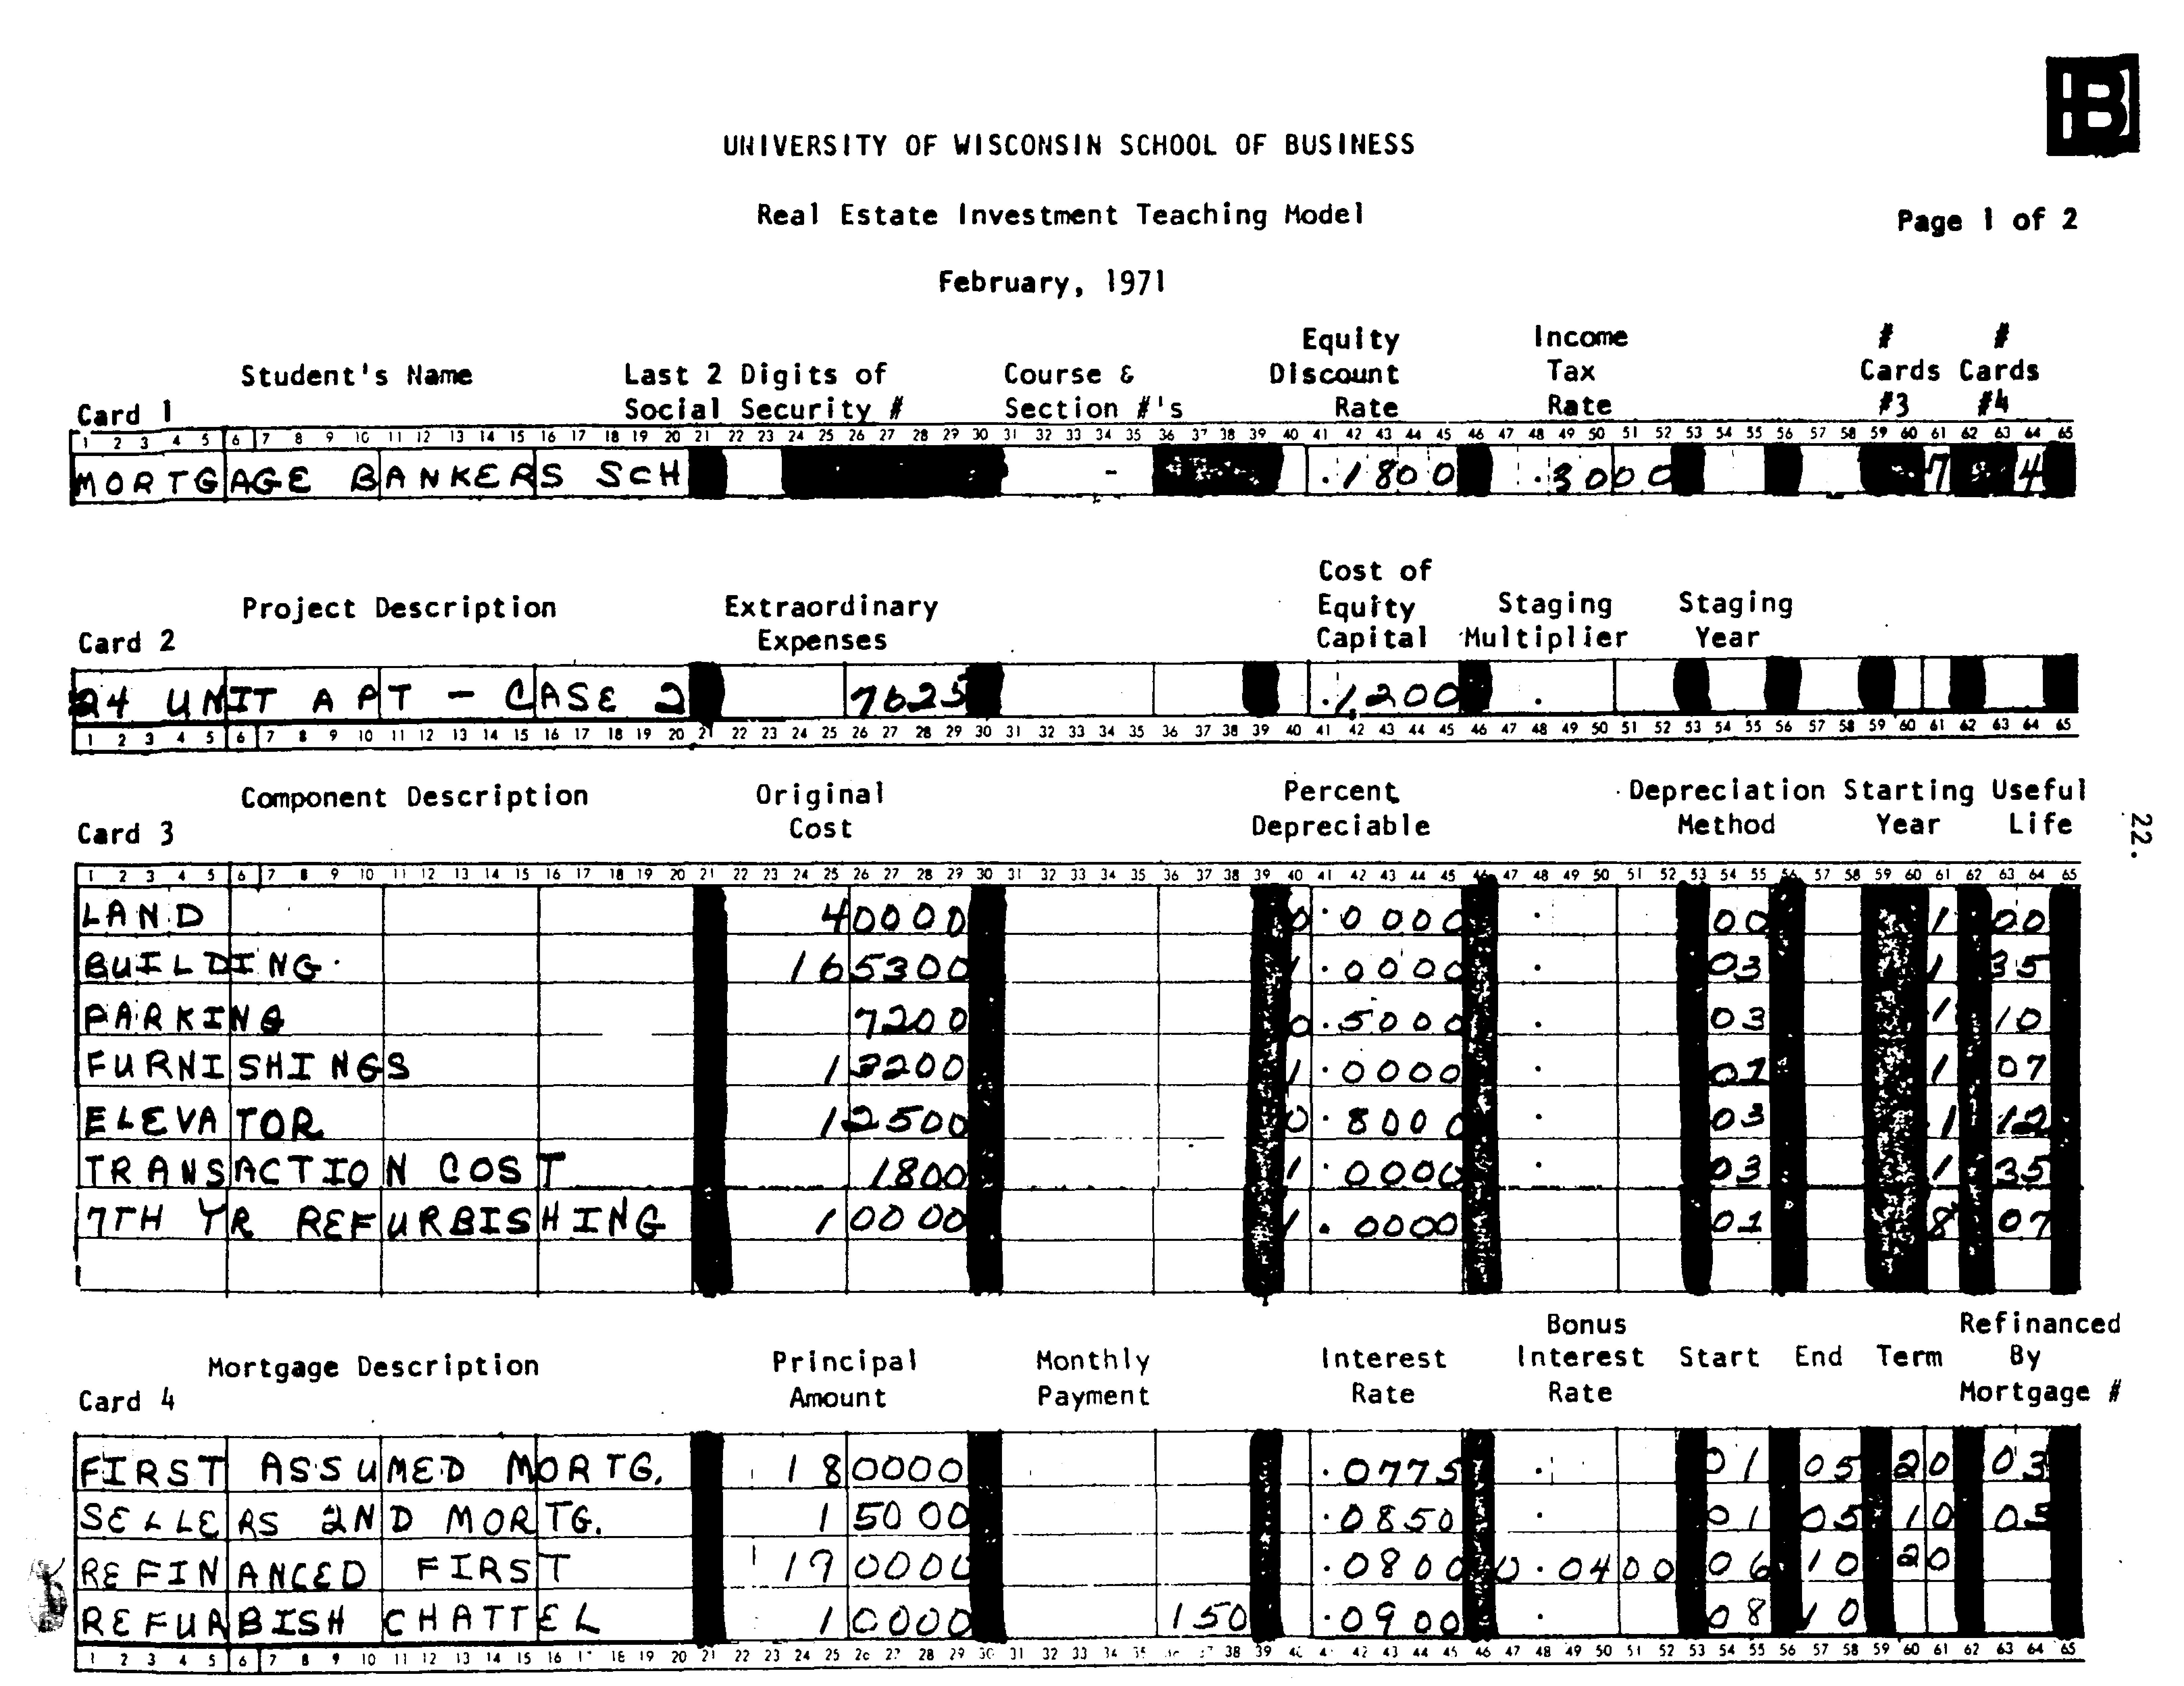 B
UNIVERSITY OF WISCONSIN SCHOOL OF BUSINESS
Real Estate Investment Teaching Model
Page 1 of 2
February, 1971
Student's Name Last 2 Digits of Social Security # Course & Section #'s Equity Discount Rate Income Tax Rate # Cards #3 # Cards #4
Card 1
1 2 3 4 5 6 7 8 9 10 11 12 13 14 15 16 17 18 19 20 21 22 23 24 25 26 27 28 29 30 31 32 33 34 35 36 37 38 39 40 41 42 43 44 45 46 47 48 49 50 51 52 53 54 55 56 57 58 59 60 61 62 63 64 65
MORTGAGE BANKERS SCH - .1800 .3000 7 4
Project Description Extraordinary Expenses Cost of Equity Capital Staging Multiplier Staging Year
Card 2
24 UNIT APT - CASE 2 7625 .1200 .
1 2 3 4 5 6 7 8 9 10 11 12 13 14 15 16 17 18 19 20 21 22 23 24 25 26 27 28 29 30 31 32 33 34 35 36 37 38 39 40 41 42 43 44 45 46 47 48 49 50 51 52 53 54 55 56 57 58 59 60 61 62 63 64 65
Component Description Original Cost Percent Depreciable Depreciation Method Starting Year Useful Life
Card 3
22.
1 2 3 4 5 6 7 8 9 10 11 12 13 14 15 16 17 18 19 20 21 22 23 24 25 26 27 28 29 30 31 32 33 34 35 36 37 38 39 40 41 42 43 44 45 46 47 48 49 50 51 52 53 54 55 56 57 58 59 60 61 62 63 64 65
LAND 40000 0.0000 . 00 1 00
BUILDING 165300 1.0000 . 03 1 35
PARKING 7200 0.5000 . 03 1 10
FURNISHINGS 13200 1.0000 . 01 1 07
ELEVATOR 12500 0.8000 . 03 1 12
TRANSACTION COST 1800 1.0000 . 03 1 35
7TH YR REFURBISHING 10000 1.0000 01 8 07
Mortgage Description Principal Amount Monthly Payment Interest Rate Bonus Interest Rate Start End Term Refinanced By Mortgage #
Card 4
FIRST ASSUMED MORTG. 180000 .0775 . 01 05 20 03
SELLERS 2ND MORTG. 15000 .0850 . 01 05 10 05
REFINANCED FIRST 190000 .0800 0.0400 06 10 20
REFURBISH CHATTEL 10000 150 .0900 . 08 10
1 2 3 4 5 6 7 8 9 10 11 12 13 14 15 16 18 19 20 21 22 23 24 25 27 28 29 30 31 32 33 34 35 38 39 42 43 44 45 46 47 48 49 50 51 52 53 54 55 56 57 58 59 60 61 62 63 64 65